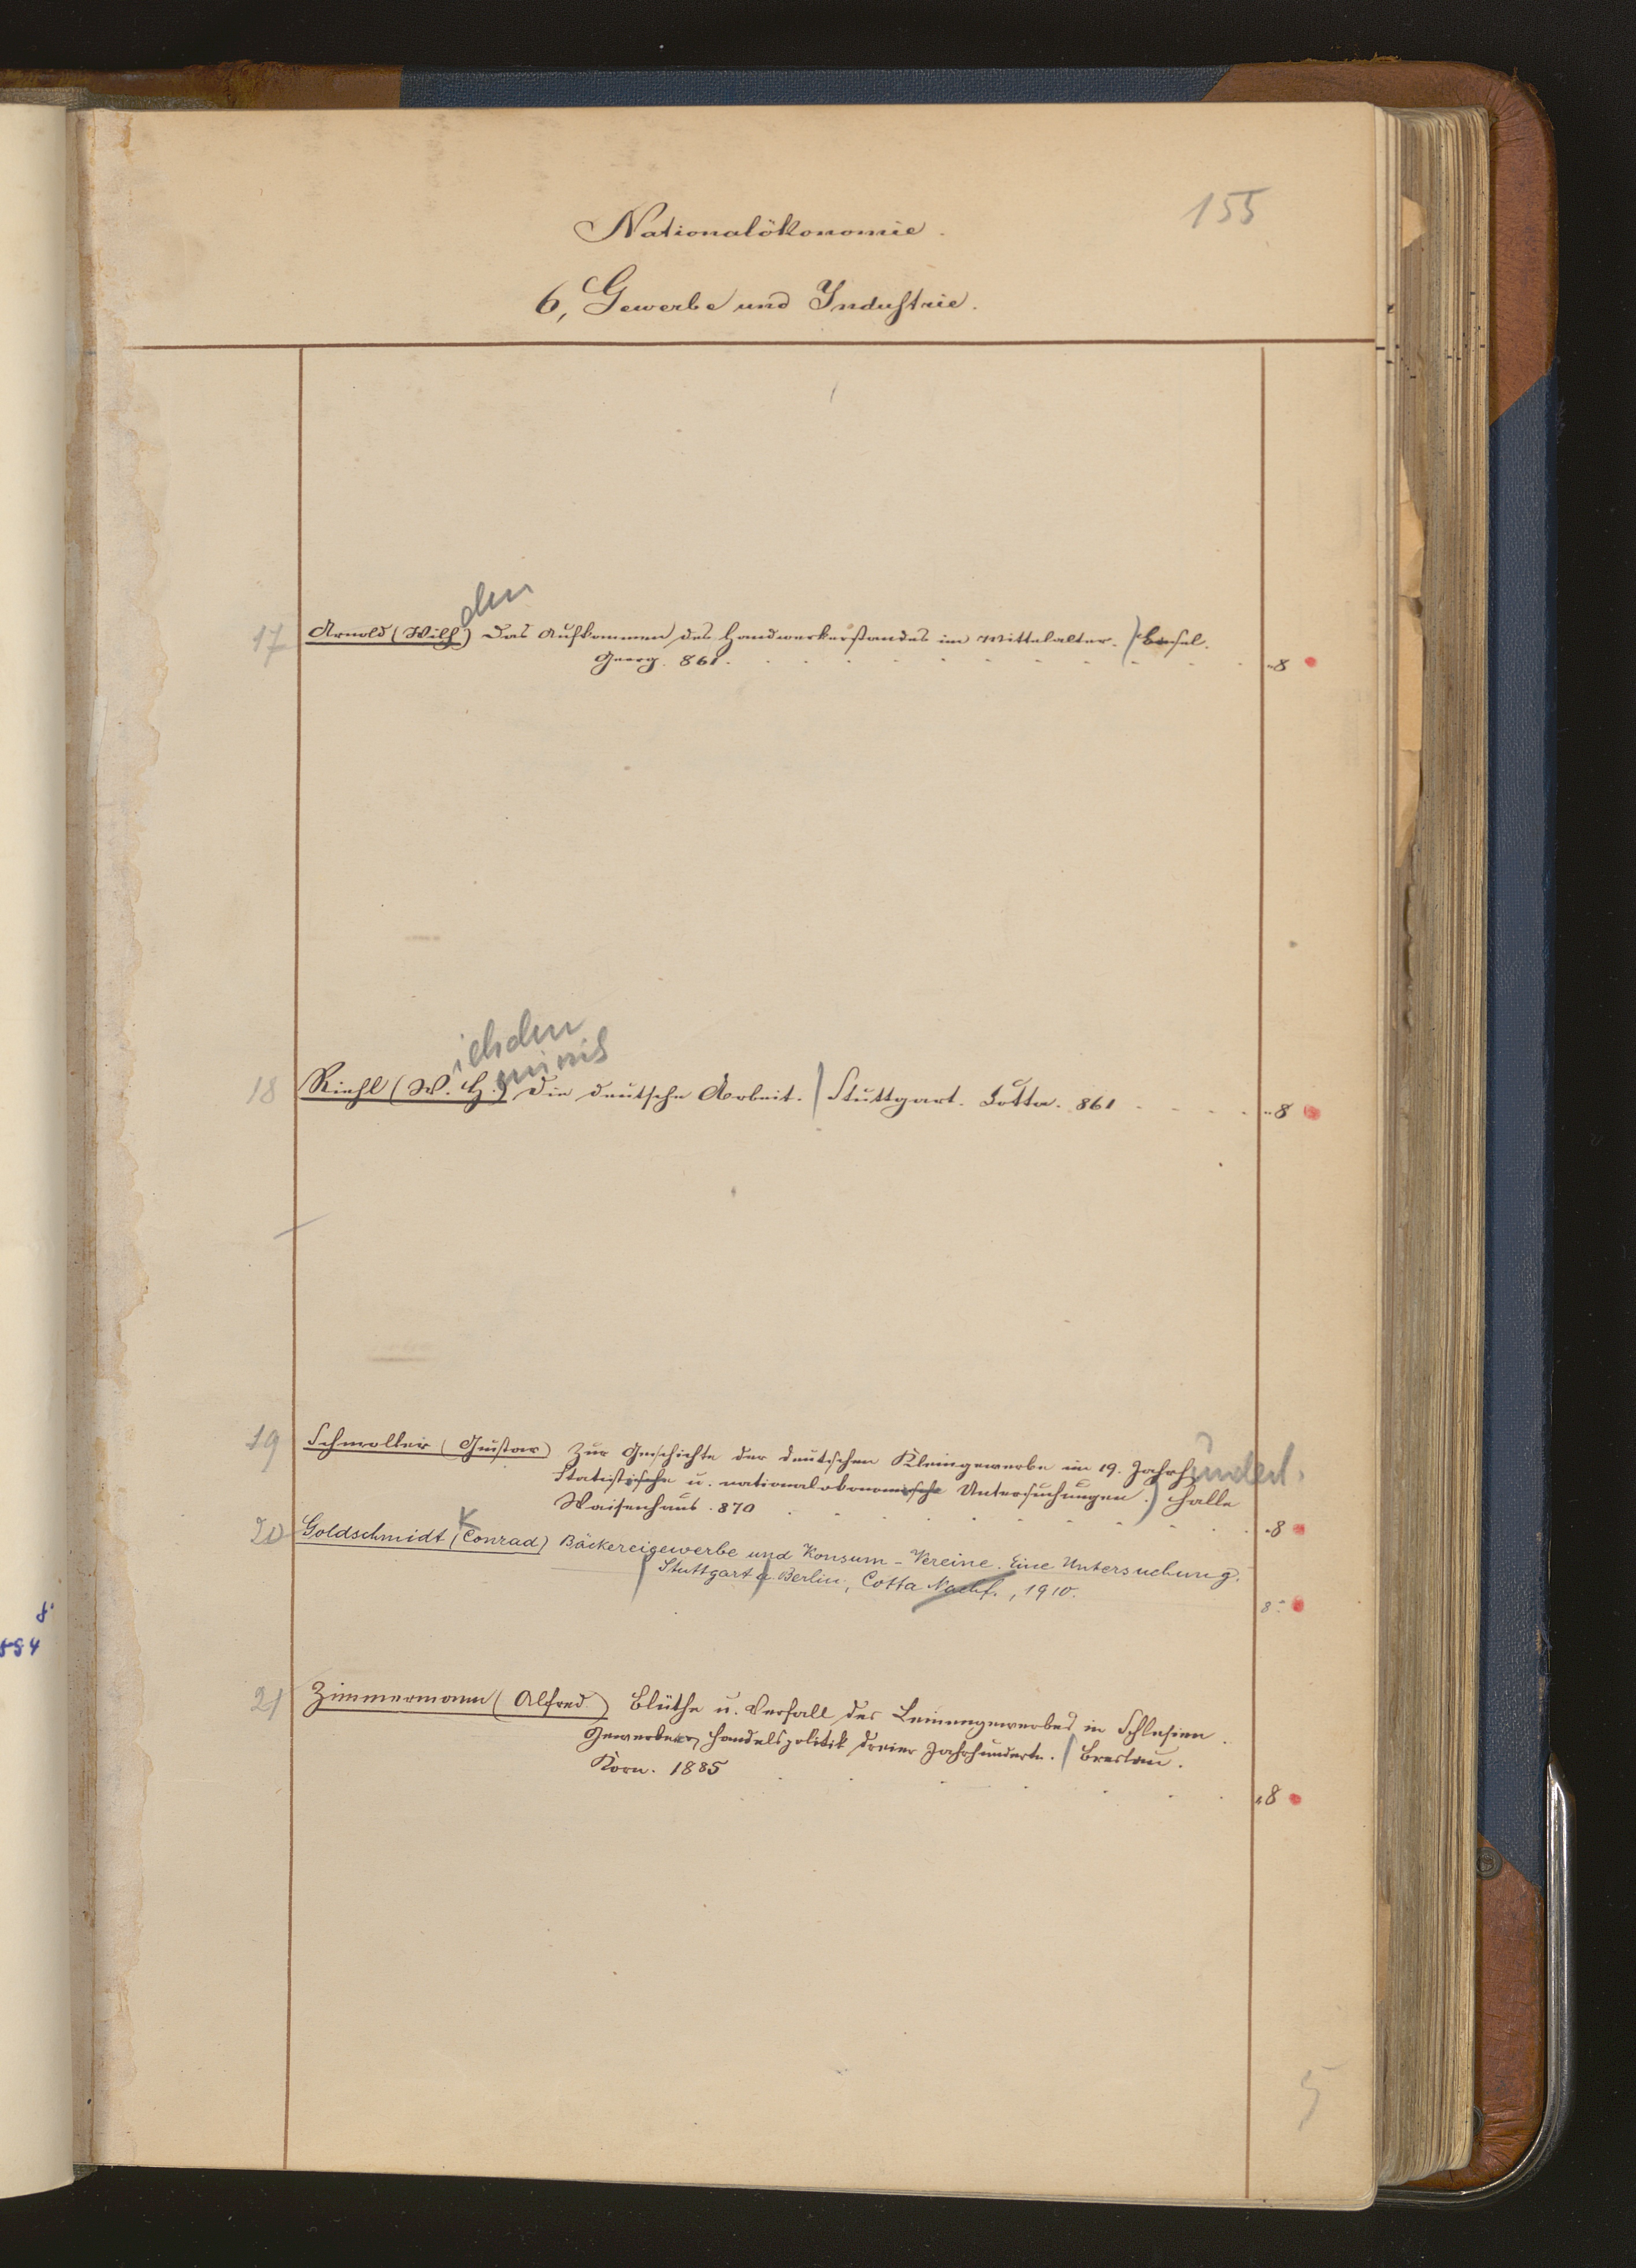 155
Nationalökonomie.
6, Gewerbe und Industrie.
17 Arnold (Wilh.) Das Aufkommen des Handwerkerstandes im Mittelalter. Basel.
Georg. 861. 8
18 Riehl (W. H.) Die deutsche Arbeit. Stuttgart. Cotta. 861 8
19 Schmoller (Gustav) Zur Geschichte der deutschen Kleingewerbe im 19. Jahrhundert.
Statistische u. nationalökonomische Untersuchungen. Halle
Waisenhaus. 870 8
20 Goldschmidt (Conrad) K Bäckereigewerbe und Konsum-Vereine. Eine Untersuchung.
Stuttgart u. Berlin, Cotta Nachf., 1910. 8
21 Zimmermann (Alfred) Blüthe u. Verfall des Leinengewerbes in Schlesien.
Gewerbe u. Handelspolitik dreier Jahrhunderte. Breslau.
Korn. 1885 8
5